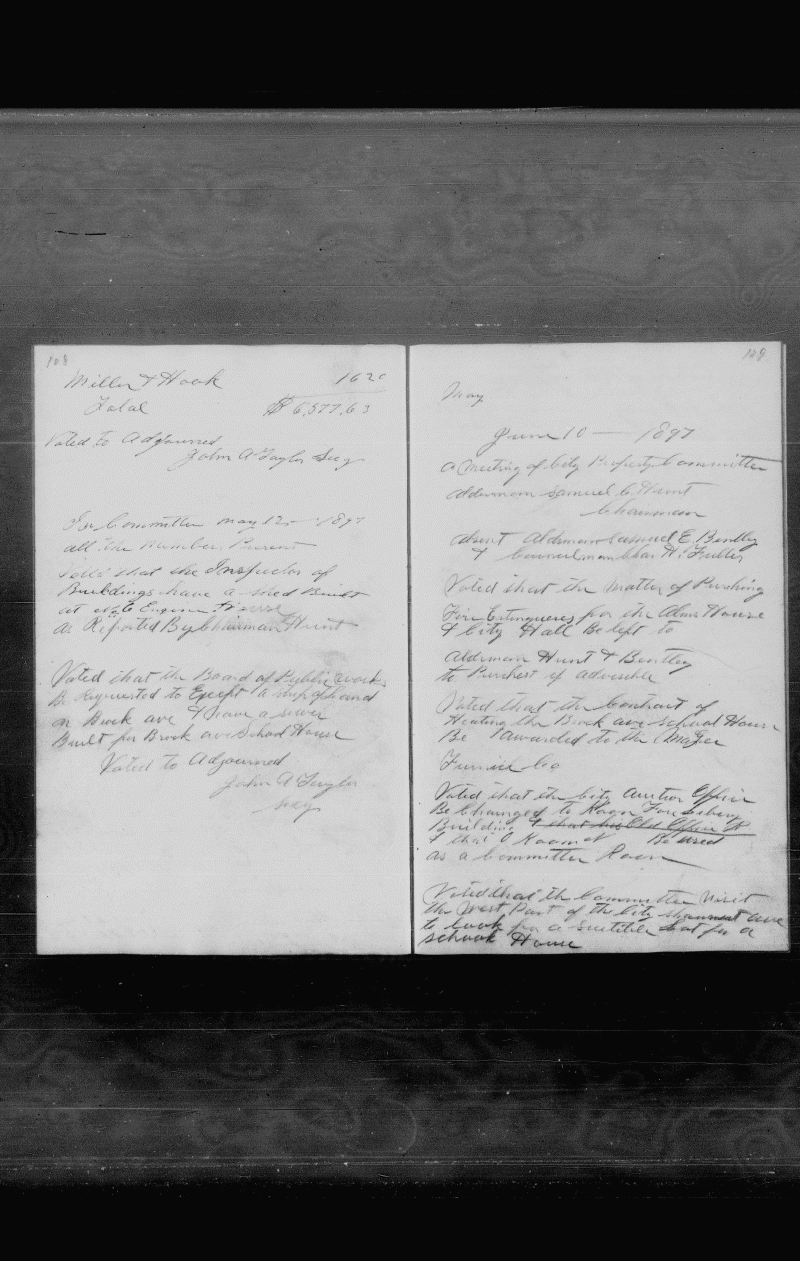 108
Miller & Hook 1620
Total $6,577.63
Voted to Adjourned
John A Taylor Secy
In Committee May 12 — 1897
all the Member Present
Voted that the Inspector of
Buildings have a shed Built
at No 6 Engine House
as Reported By Chairman Hunt
Voted that the Board of Public works
Be Requested to Except a strip of Land
on Brock ave & have a sewer
Built for Brock ave School House
Voted to Adjourned
John A Taylor
Secy
109
May
June 10 — 1897
a Meeting of City Property Committee
Alderman Samuel C. Hunt
Chairman
absent Alderman Samuel E. Bentley
& Councilman Chas H. Fuller
Voted that the Matter of Purching
Fire Extingueres for the Alms House
& City Hall Be left to
Alderman Hunt & Bentley
to Purchest if adviseble
Voted that the Contract of
Heating the Brock ave school House
Be awarded to the Magee
Furnice Co
Voted that the City Office
Be Changed to Room Free
Building & that his Old Office
& that Room of Be used
as a Committee Room
Voted that the Committee Visit
the West Part of the City shawmut ave
to look for a suitible Lot for a
school House